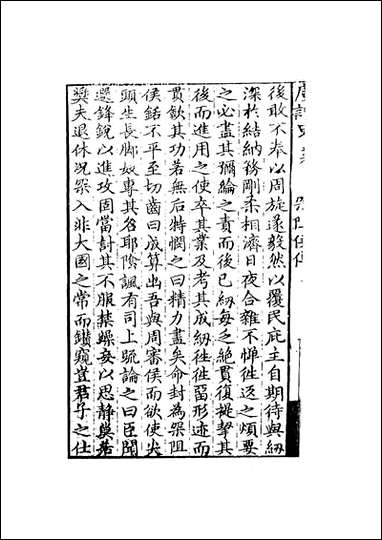 後敢不奉以周旋遂毅然以覆民庇主自期待與紉
深於結納務剛柔相濟日夜合雜不憚往返之煩要
之必盡其彌綸之責而後已紉每之絶貫復提挈其
後而進用之使卒其業及考其成紉徃徃畱形迹而
貫歛其功若無后特憫之曰精力盡矣命封為褧阻
侯銘不平至切齒曰成算出吾與周審侯而欲使尖
頭生長脚奴專其名耶陰諷有司上䟽論之曰臣聞
選鋒銳以進攻固當討其不服禁躁妄以思靜奠若
奬夫退休况褧入非大國之常而鑚窺豈君子之仕